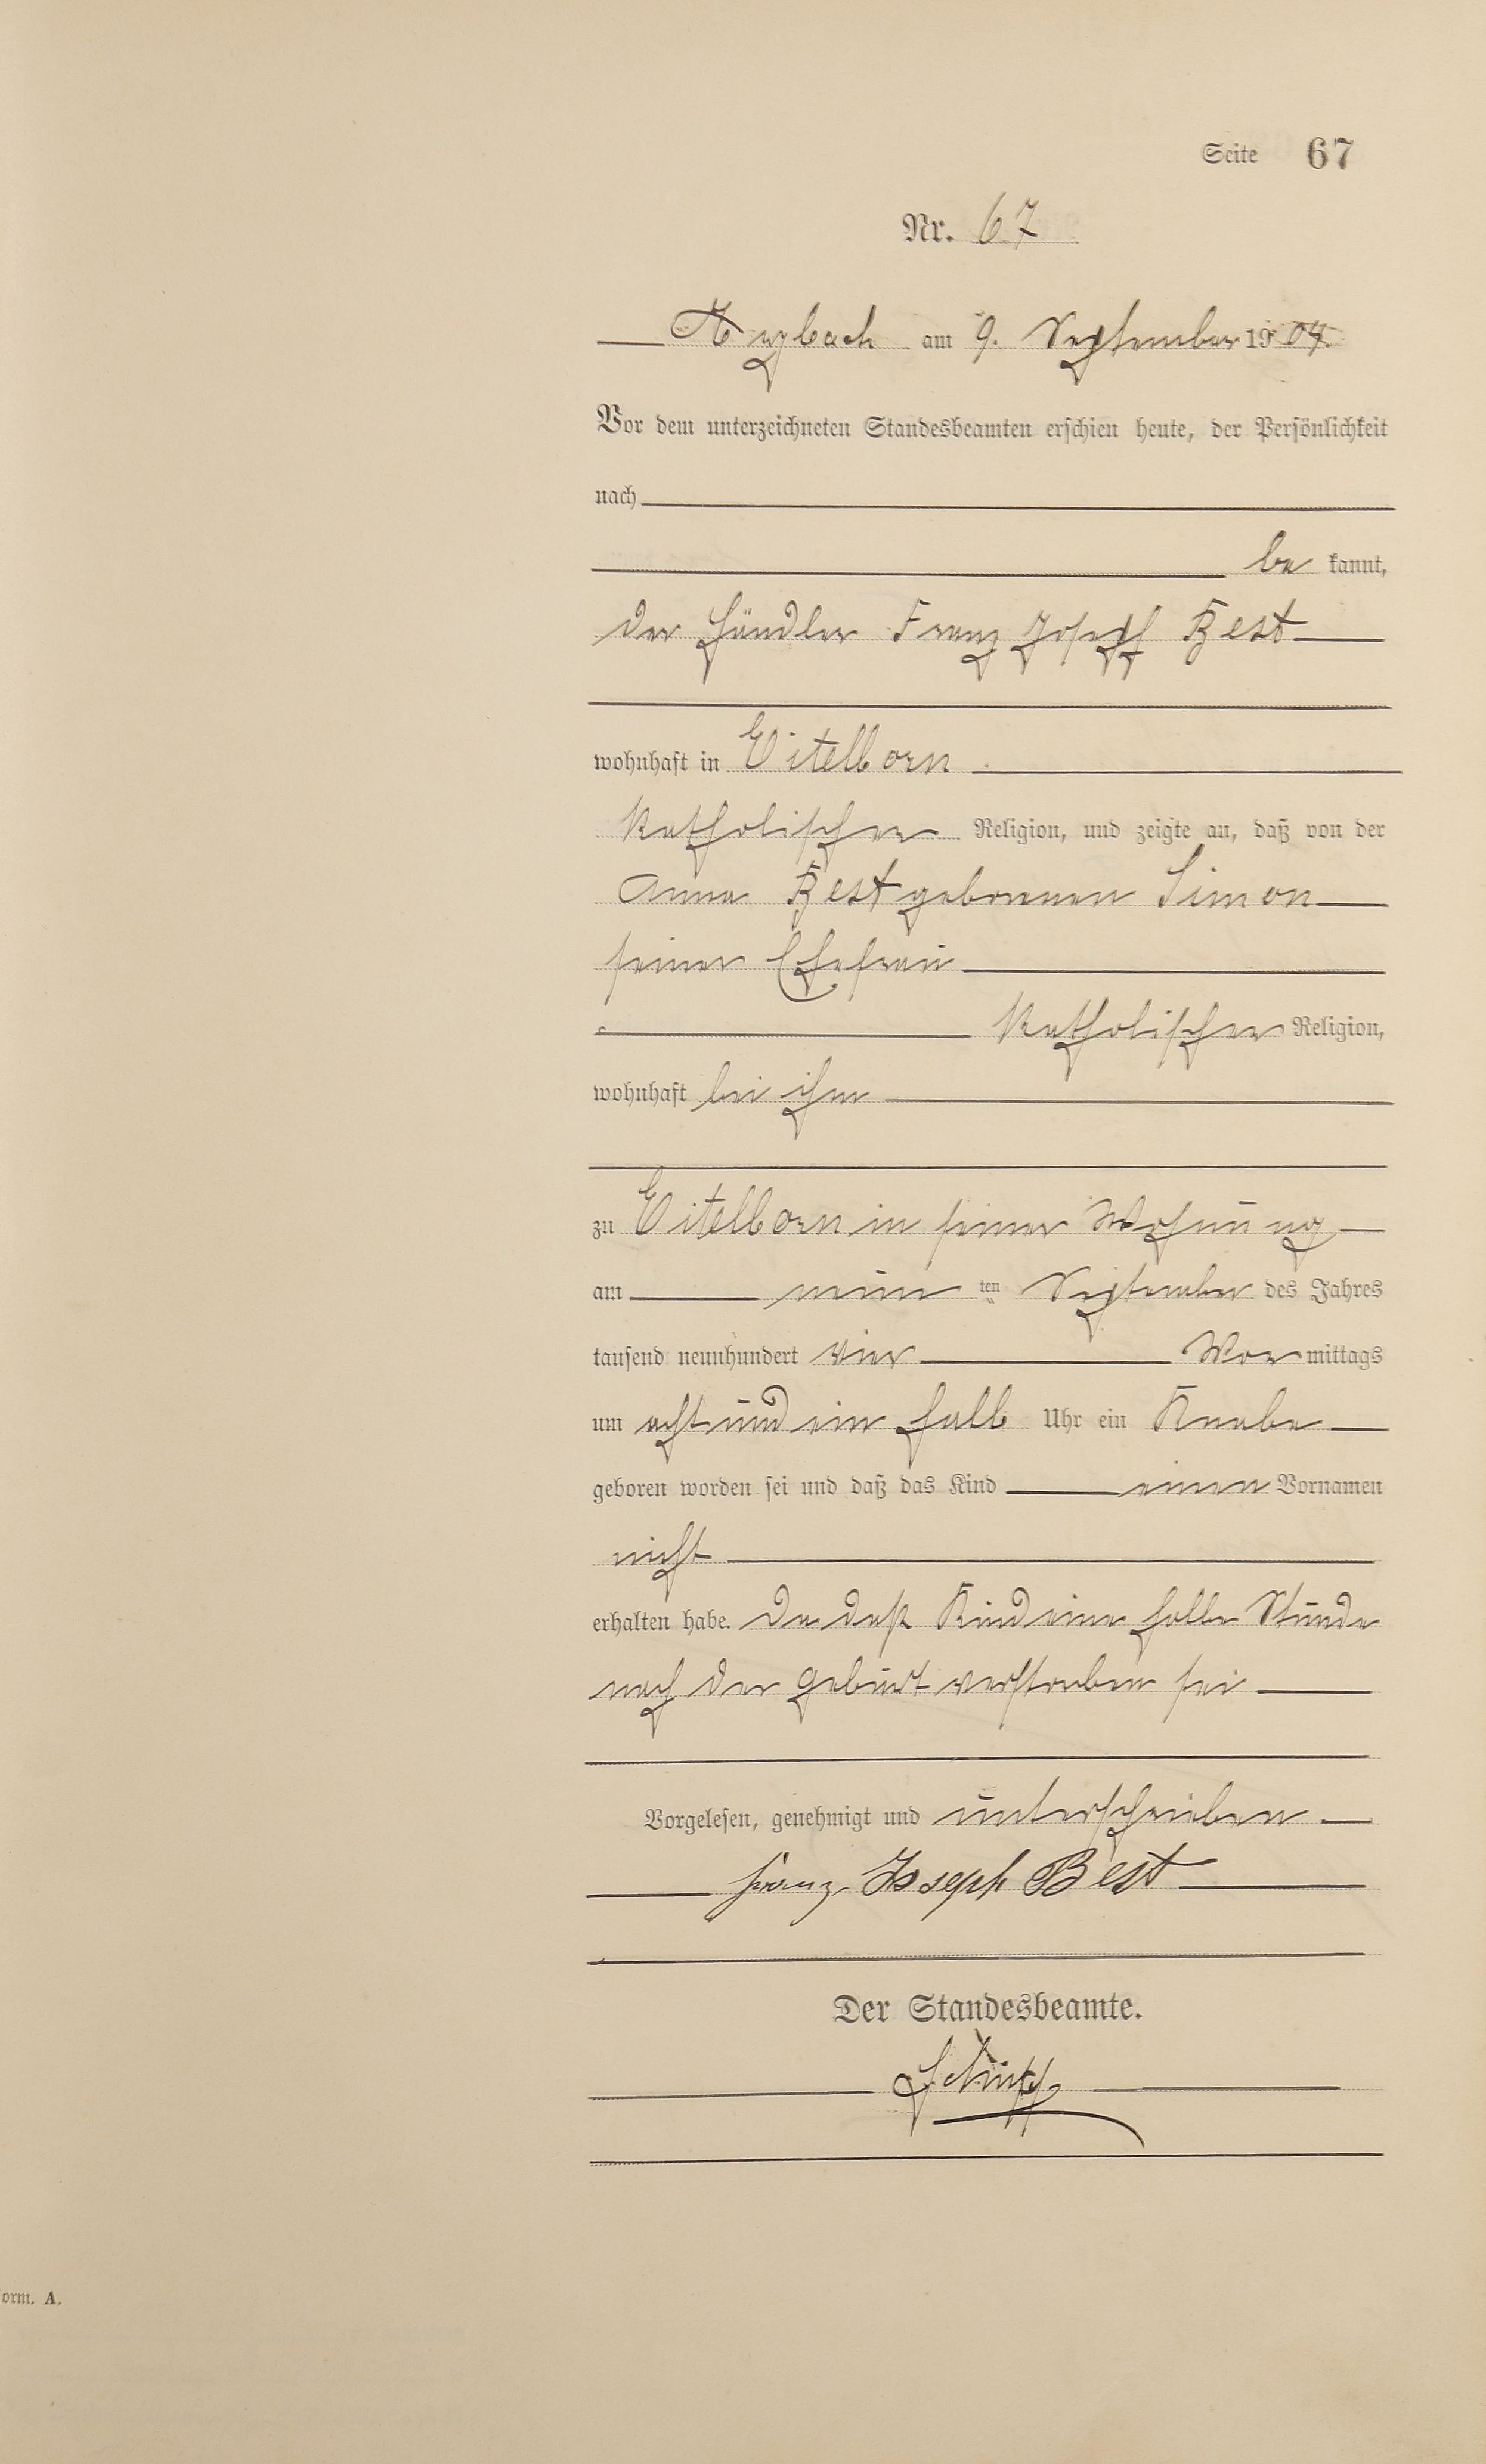 Seite 67
Nr. 67
Arzbach am 9. September 1904.
Vor dem unterzeichneten Standesbeamten erschien heute, der Persönlichkeit
nach
be kannt,
der Händler Franz Joseph Best
wohnhaft in Eitelborn
katholischer Religion, und zeigte an, daß von der
Anna Best geborenen Simon
seiner Ehefrau
katholischer Religion,
wohnhaft bei ihm
zu Eitelborn in seiner Wohnung
am neun ten September des Jahres
tausend neunhundert vier Vor mittags
um acht und ein halb Uhr ein Knabe
geboren worden sei und daß das Kind einen Vornamen
nicht
erhalten habe. Da daß Kind eine halbe Stunde
nach der Geburt verstorben sei
Vorgelesen, genehmigt und unterschrieben
Franz Joseph Best
Der Standesbeamte.
orm. A.